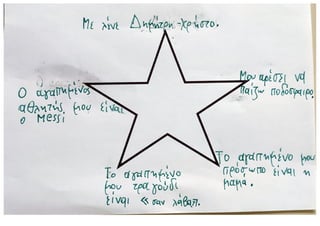 Με λένε Δημήτρη-Χρήστο.
Ο αγαπημένος
αθλητής μου είναι
ο Messi
Μου αρέσει να
παίζω ποδόσφαιρο.
Το αγαπημένο
μου τραγούδι
είναι « σαν λάβα».
Το αγαπημένο μου
πρόσωπο είναι η
μαμά.